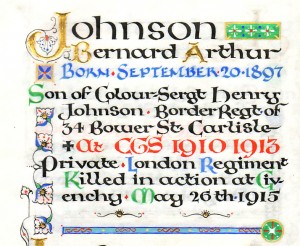 Johnson
Bernard Arthur
Born · September · 20 · 1897
Son of Colour-Sergt Henry
Johnson · Border Regt · of
34 Bower St. Carlisle-
At CGS 1910 1913
Private · London Regiment
Killed in action at Giv
enchy · May 26th · 1915